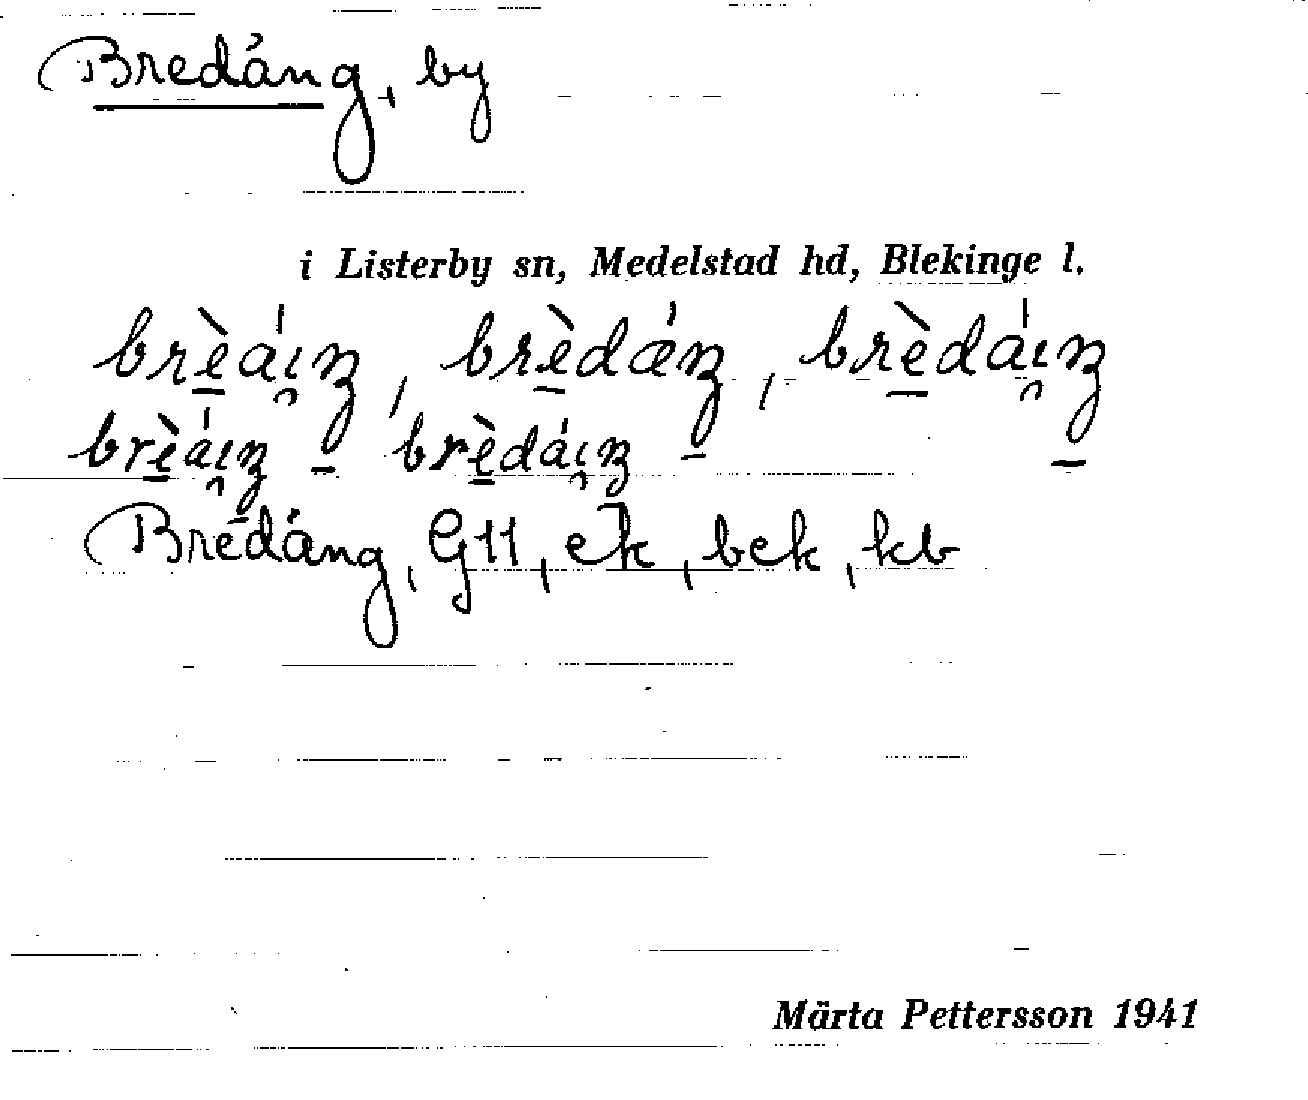 Bredång, by
i Listerby sn, Medelstad hd, Blekinge l.
brèáı̯ŋ, brèdæ̀ŋ, brèdáı̯ŋ
brèáı̯ŋ brèdáı̯ŋ
Bredång, G11, ek, bek, kb
Märta Pettersson 1941